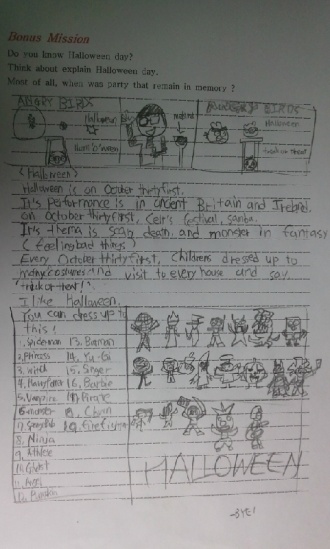 Bonus Mission
Do you know Halloween day?
Think about explain Halloween day.
Most of all, when was party that remain in memory ?
ANGRY BIRDS
Halloween
Halloween
trick or treat
(Halloween)
Halloween is on October thirty first.
It's performance is in ancent Britain and Ireland.
on October thirty first, Celt's festival, samba.
It's thema is scary death and monster in fantasy
(feeling bad things)
Every October thirty first, childrens dressed up to
many costumes and visit to every house and say.
"trick or treat!"
I like Halloween.
You can dress up to
this!
1. Spiderman 13. Batman
2. Princess 14. Yu-Gi
3. Witch 15. Singer
4. 16. Barbie
5. Vampire 17. Pirate
6. monster 18.
7. 19.
8. Ninja
9. Athlete
10. Ghost
11.
12.
HALLOWEEN
-BYE!